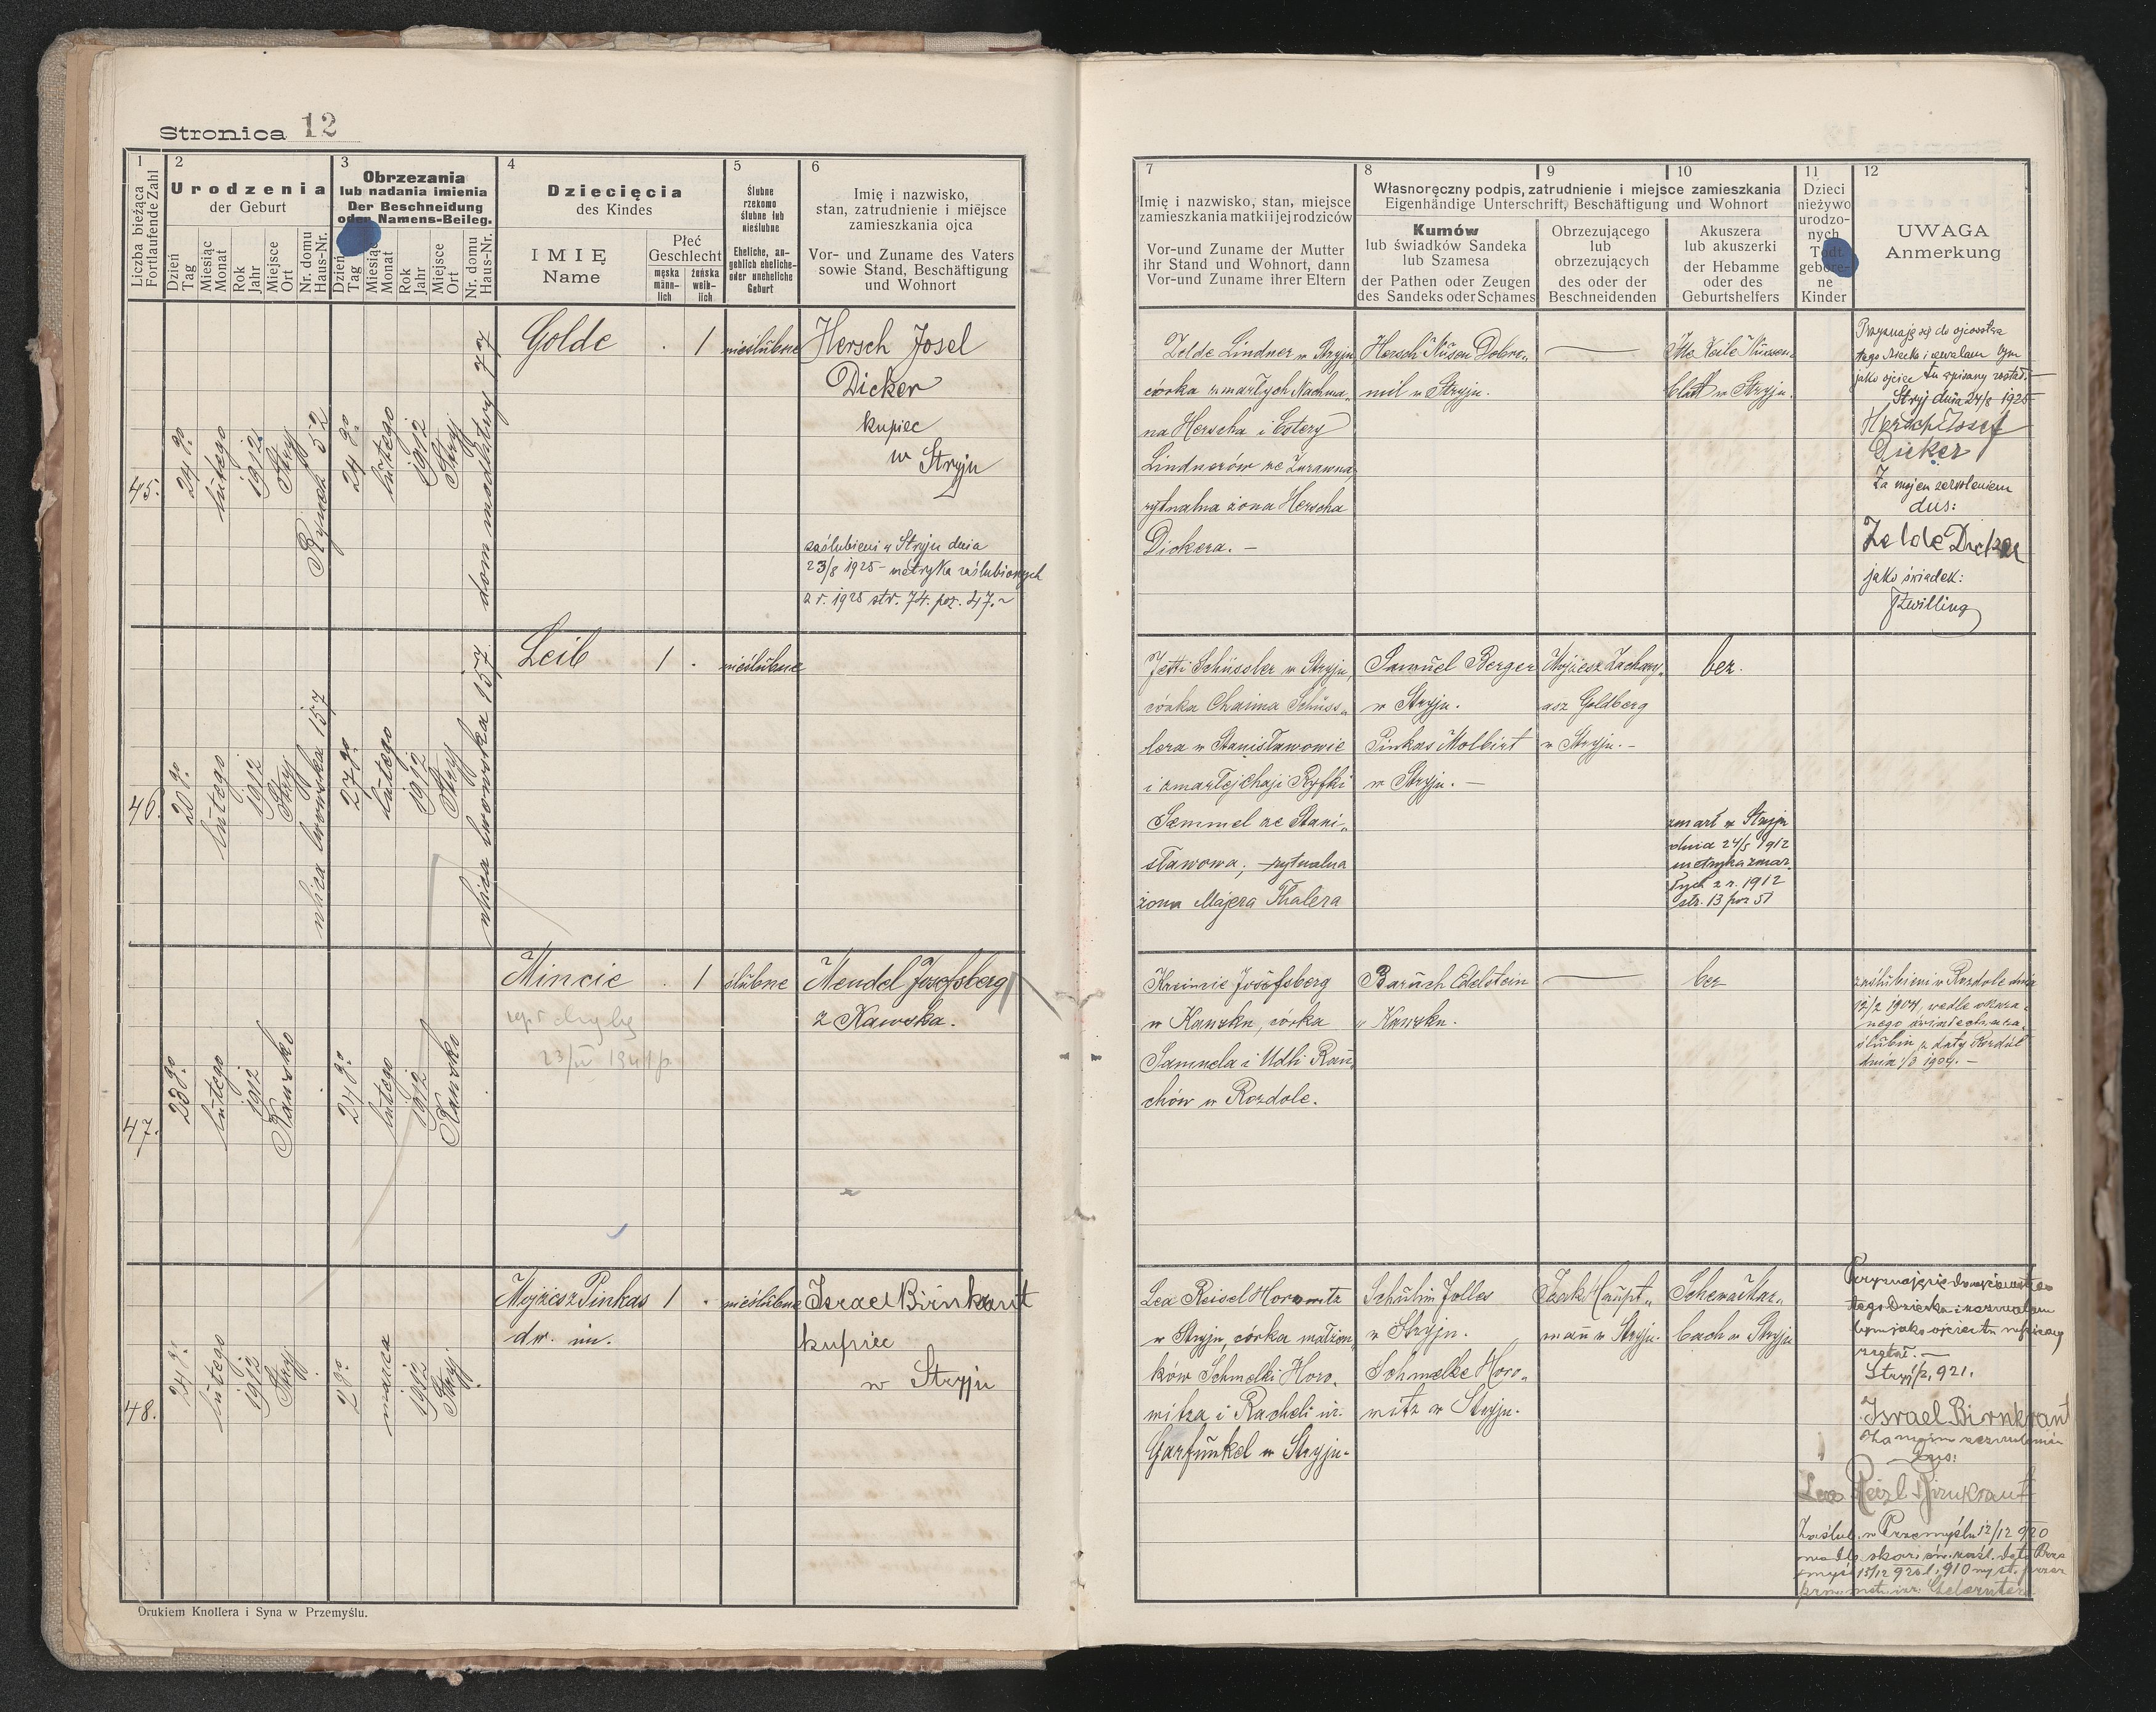 Stronica 12
1
Liczba bieżąca
Fortlaufende Zahl
2
Urodzenia
der Geburt
Dzień
Tag
Miesiąc
Monat
Rok
Jahr
Miejsce
Ort
Nr. domu
Haus-Nr.
3
Obrzezania
lub nadania imienia
Der Beschneidung
oder Namens-Beileg.
Dzień
Tag
Miesiąc
Monat
Rok
Jahr
Miejsce
Ort
Nr. domu
Haus-Nr.
4
Dziecięcia
des Kindes
IMIĘ
Name
Płeć
Geschlecht
męska
männ-
lich
żeńska
weib-
lich
5
Ślubne
rzekomo
ślubne lub
nieślubne
Eheliche, an-
geblich eheliche-
oder uneheliche
Geburt
6
Imię i nazwisko,
stan, zatrudnienie i miejsce
zamieszkania ojca
Vor- und Zuname des Vaters
sowie Stand, Beschäftigung
und Wohnort
7
Imię i nazwisko, stan, miejsce
zamieszkania matki i jej rodziców
Vor-und Zuname der Mutter
ihr Stand und Wohnort, dann
Vor-und Zuname ihrer Eltern
8
9
10
Własnoręczny podpis, zatrudnienie i miejsce zamieszkania
Eigenhändige Unterschrift, Beschäftigung und Wohnort
Kumów
lub świadków Sandeka
lub Szamesa
der Pathen oder Zeugen
des Sandeks oder Schames
Obrzezującego
lub
obrzezujących
des oder der
Beschneidenden
Akuszera
lub akuszerki
der Hebamme
oder des
Geburtshelfers
11
Dzieci
nieżywo
urodzo-
nych
Todt
gebore-
ne
Kinder
12
UWAGA
Anmerkung
45.
24go
lutego
1912
Stryj
Rynek 52
24go
lutego
1912
Stryj
dom modlitwy 77
Golde
. 1
nieślubne
Hersch Josel
Dicker
kupiec
w Stryju
zaślubieni w Stryju dnia
23/8 1925 - metryka zaślubionych
z r. 1925 str. 74. poz. 47.
Zelde Lindner w Stryju
córka zmarłych Nachma-
na Herscha i Estery
Lindnerów ze Żurawna,
rytualna żona Herscha
Dickera. -
Hersch Nusen Dobro-
mil w Stryju.
Nussen-
blatt w Stryju.
Przyznaję się do ojcostwa
tego dziecka i zezwalam bym
jako ojciec tu wpisany został. -
Stryj dnia 24/8 1925
Hersch Josef
Dicker
Za mojem zezwoleniem
dus:
Zelde Dicker
jako świadek:
Zwilling
46.
20go
lutego
1912
Stryj
ulica lwowska 157
27go
lutego
1912
Stryj
ulica lwowska 157
Leib
1 .
nieślubne
Jetti Schüssler w Stryju,
córka Chaima Schüss-
lera w Stanisławowie
i zmarłej Chaji Ryfki
Semmel ze Stani-
sławowa; rytualna
żona Majera Thalera
Samuel Berger
w Stryju.
Pinkas Molbirt
w Stryju. -
Mojżesz Zachary-
asz Goldberg
w Stryju. -
bez.
zmarł w Stryju
dnia 24/5 1912
metryka zmar
łych z r. 1912
str. 13 poz 51
47.
23go
lutego
1912
Kawsko
24go
lutego
1912
Kawsko
Mincie
. 1
ślubne
Mendel Josefsberg
z Kawska.
Kreincie Josefsberg
w Kawsku, córka
Samuela i Udli Rau-
chów w Rozdole.
Baruch Edelstein
w Kawsku.
bez
zaślubieni w Rozdole dnia
12/2 1904, wedle okaza-
nego świadectwa
ślubu z daty Rozdół
dnia 1/3 1904. -
48.
24go
lutego
1912
Stryj
2go
marca
1912
Stryj.
Mojżesz Pinkas
dw. im.
1 .
nieślubne
Israel Birnkraut
kupiec
w Stryju
Lea Reisel Horowitz
w Stryju, córka małżon-
ków Schmelki Horo-
witza i Racheli ur.
Garfunkel w Stryju.
Schulim Jolles
w Stryju.
Schmelke Horo-
witz w Stryju.
Isak Haupt-
mann w Stryju.
Schewa Mar-
bach w Stryju
Przyznaję się do ojcostwa
tego dziecka i zezwalam
bym jako ojciec tu wpisany
został. -
Israel Birnkraut
Za mojem zezwoleniem
dus:
Lea Reizl Birnkraut
Zaślub. w Przemyślu 12/12 920
Drukiem Knollera i Syna w Przemyślu.